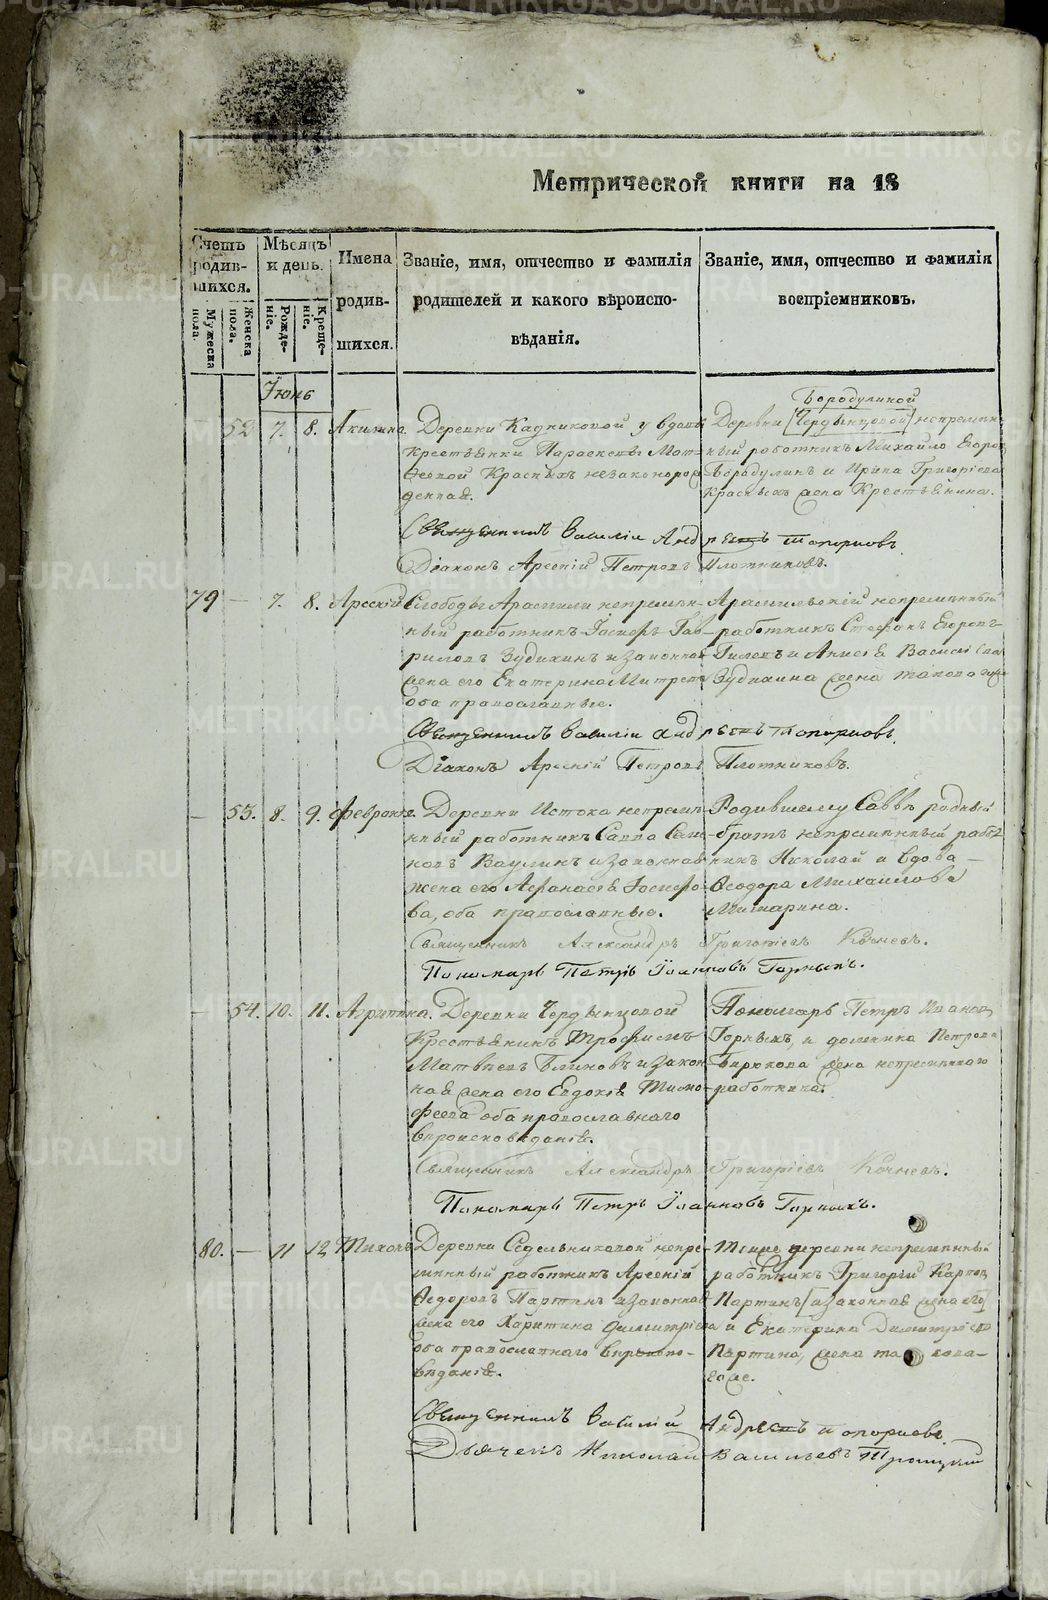 Метрической книги на 18
Счетъ родив-шихся.
Мужеска пола.
Женска пола.
Мѣсяцъ и день.
Рожде-ніе.
Креще-ніе.
Имена родив-шихся.
Званіе, имя, отчество и фамилія
родителей и какого вѣроиспо-
вѣданія.
Званіе, имя, отчество и фамилія
воспріемниковъ.
Іюнь
52 7. 8. Акилина.
Деревни Кадниковой у вдовы
крестьянки Параскевы Мат-
Красныхъ незаконорож
денная.
Бородулиной
Деревни Чердынцовой непремен-
ный работникъ Михайло Егоров
Бородулинъ и Ирина Григоріева
Красныхъ жена Крестьянина.
Священникъ Василій Андреевъ Топорковъ.
Діаконъ Арсеній Петровъ Плотниковъ.
79 — 7. 8.
Слободы Арамили непремен-
ный работникъ Іосифъ Гав-
риловъ Зудихинъ и законная
жена его Екатерина Митрева
оба православные.
Арамильскій непременный
работникъ Стефанъ Егоровъ
и Анисья Василіева
Зудихина жена такова
Священникъ Василій Андреевъ Топорковъ.
Діаконъ Арсеній Петровъ Плотниковъ.
— 53. 8. 9. Февронія.
Деревни Истока непреме-
нный работникъ Савва Семе-
новъ Ваулинъ и законная
жена его Афанасья Іосифо-
ва, оба православные.
Родившему Саввѣ родный
братъ непременный работ
никъ Николай и вдова
Феодора Михайлова
Мишарина.
Священникъ Александръ Григоріевъ Кочневъ.
Пономарь Петръ Іоанновъ Горныхъ.
— 54. 10. 11. Агрипина.
Деревни Чердынцовой
Крестьянинъ Трофимъ
Матвѣевъ Блиновъ и закон
ная жена его Евдокія Тимо-
феева оба православнаго
вѣроисповѣданія.
Пономарь Петръ Иванов
Горныхъ, и домника Петрова
Бирюкова жена непременнаго
работника.
Священникъ Александръ Григоріевъ Кочневъ.
Пономарь Петръ Іоанновъ Горныхъ.
80. — 11 12 Тихонъ
Деревни Седельниковой непре-
менный работникъ Арсеній
Федоровъ Партинъ и законная
жена его Харитина Димитріева
оба православнаго вѣроиспо-
вѣданія.
Тоже деревни непременный
работникъ Григорій Карпов
Партинъ и законная жена его
и Екатерина Димитріева
Партина, жена та кова-
гоже.
Священникъ Василій Андреевъ Топорковъ.
Дьячекъ Николай Васильевъ Троицкій
METRIKI.GASO-URAL.RU